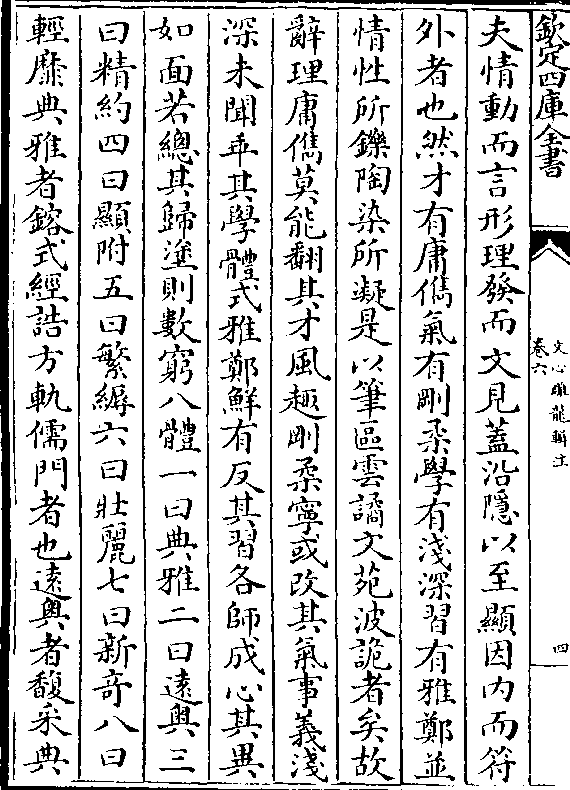 欽定四庫全書
文心雕龍輯注
卷六
四
夫情動而言形理發而文見蓋沿隱以至顯因内而符
外者也然才有庸儁氣有剛柔學有淺深習有雅鄭並
情性所鑠陶染所凝是以筆區雲譎文苑波詭者矣故
辭理庸儁莫能翻其才風趣剛柔寧或改其氣事義淺
深未聞乖其學體式雅鄭鮮有反其習各師成心其異
如面若總其歸塗則數窮八體一曰典雅二曰遠奥三
曰精約四曰顯附五曰繁縟六曰壯麗七曰新奇八曰
輕靡典雅者鎔式經誥方軌儒門者也遠奥者馥采典